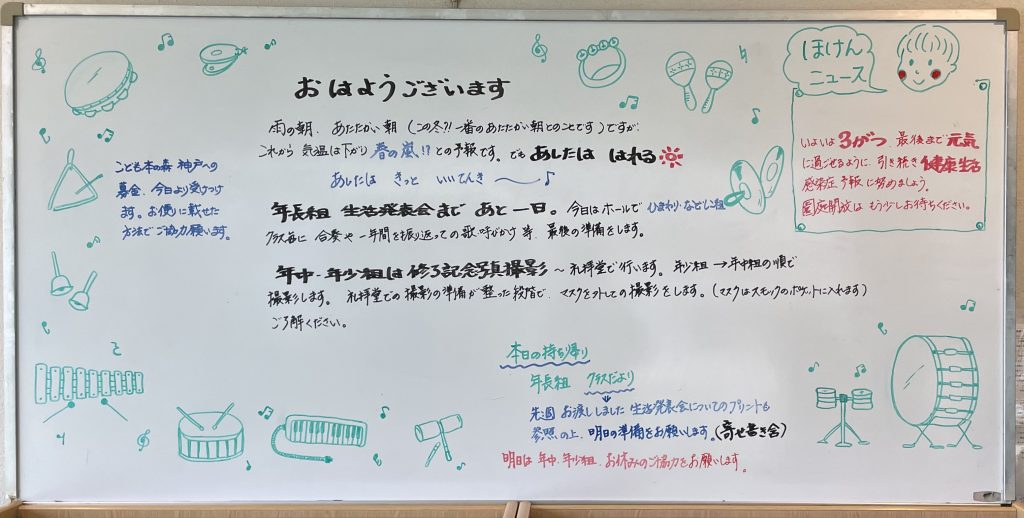 おはようございます
雨の朝、あたたかい朝（この冬?!一番のあたたかい朝とのことです）ですが、
これから 気温は下がり 春の嵐!?との予報です。でも あしたは はれる
あしたは きっと いいてんき〜
年長組 生活発表会まで あと一日。今日はホールで ひまわり・なでしこ組
クラス毎に 合奏や 一年間を振り返っての歌・呼びかけ 等、最後の準備をします。
年中・年少組は 修了記念写真撮影 〜 礼拝堂で行います。年少組→年中組の順で
撮影します。礼拝堂での撮影の準備が整った段階で、マスクを外しての撮影をします。（マスクはスモックのポケットに入れます）
ご了解ください。
こども本の森 神戸への
募金、今日より受けつけ
ます。お便りに載せた
方法でご協力願います。
ほけん
ニュース
いよいよ 3がつ、最後まで 元気
に過ごせるように、引き続き 健康生活
感染症予報に努めましょう。
園庭開放は もう少しお待ちください。
本日の持ち帰り
年長組 クラスだより
先週 お渡ししました 生活発表会についてのプリントも
参照の上、明日の準備をお願いします。（寄せ書き含）
明日は 年中・年少組、お休みのご協力をお願いします。